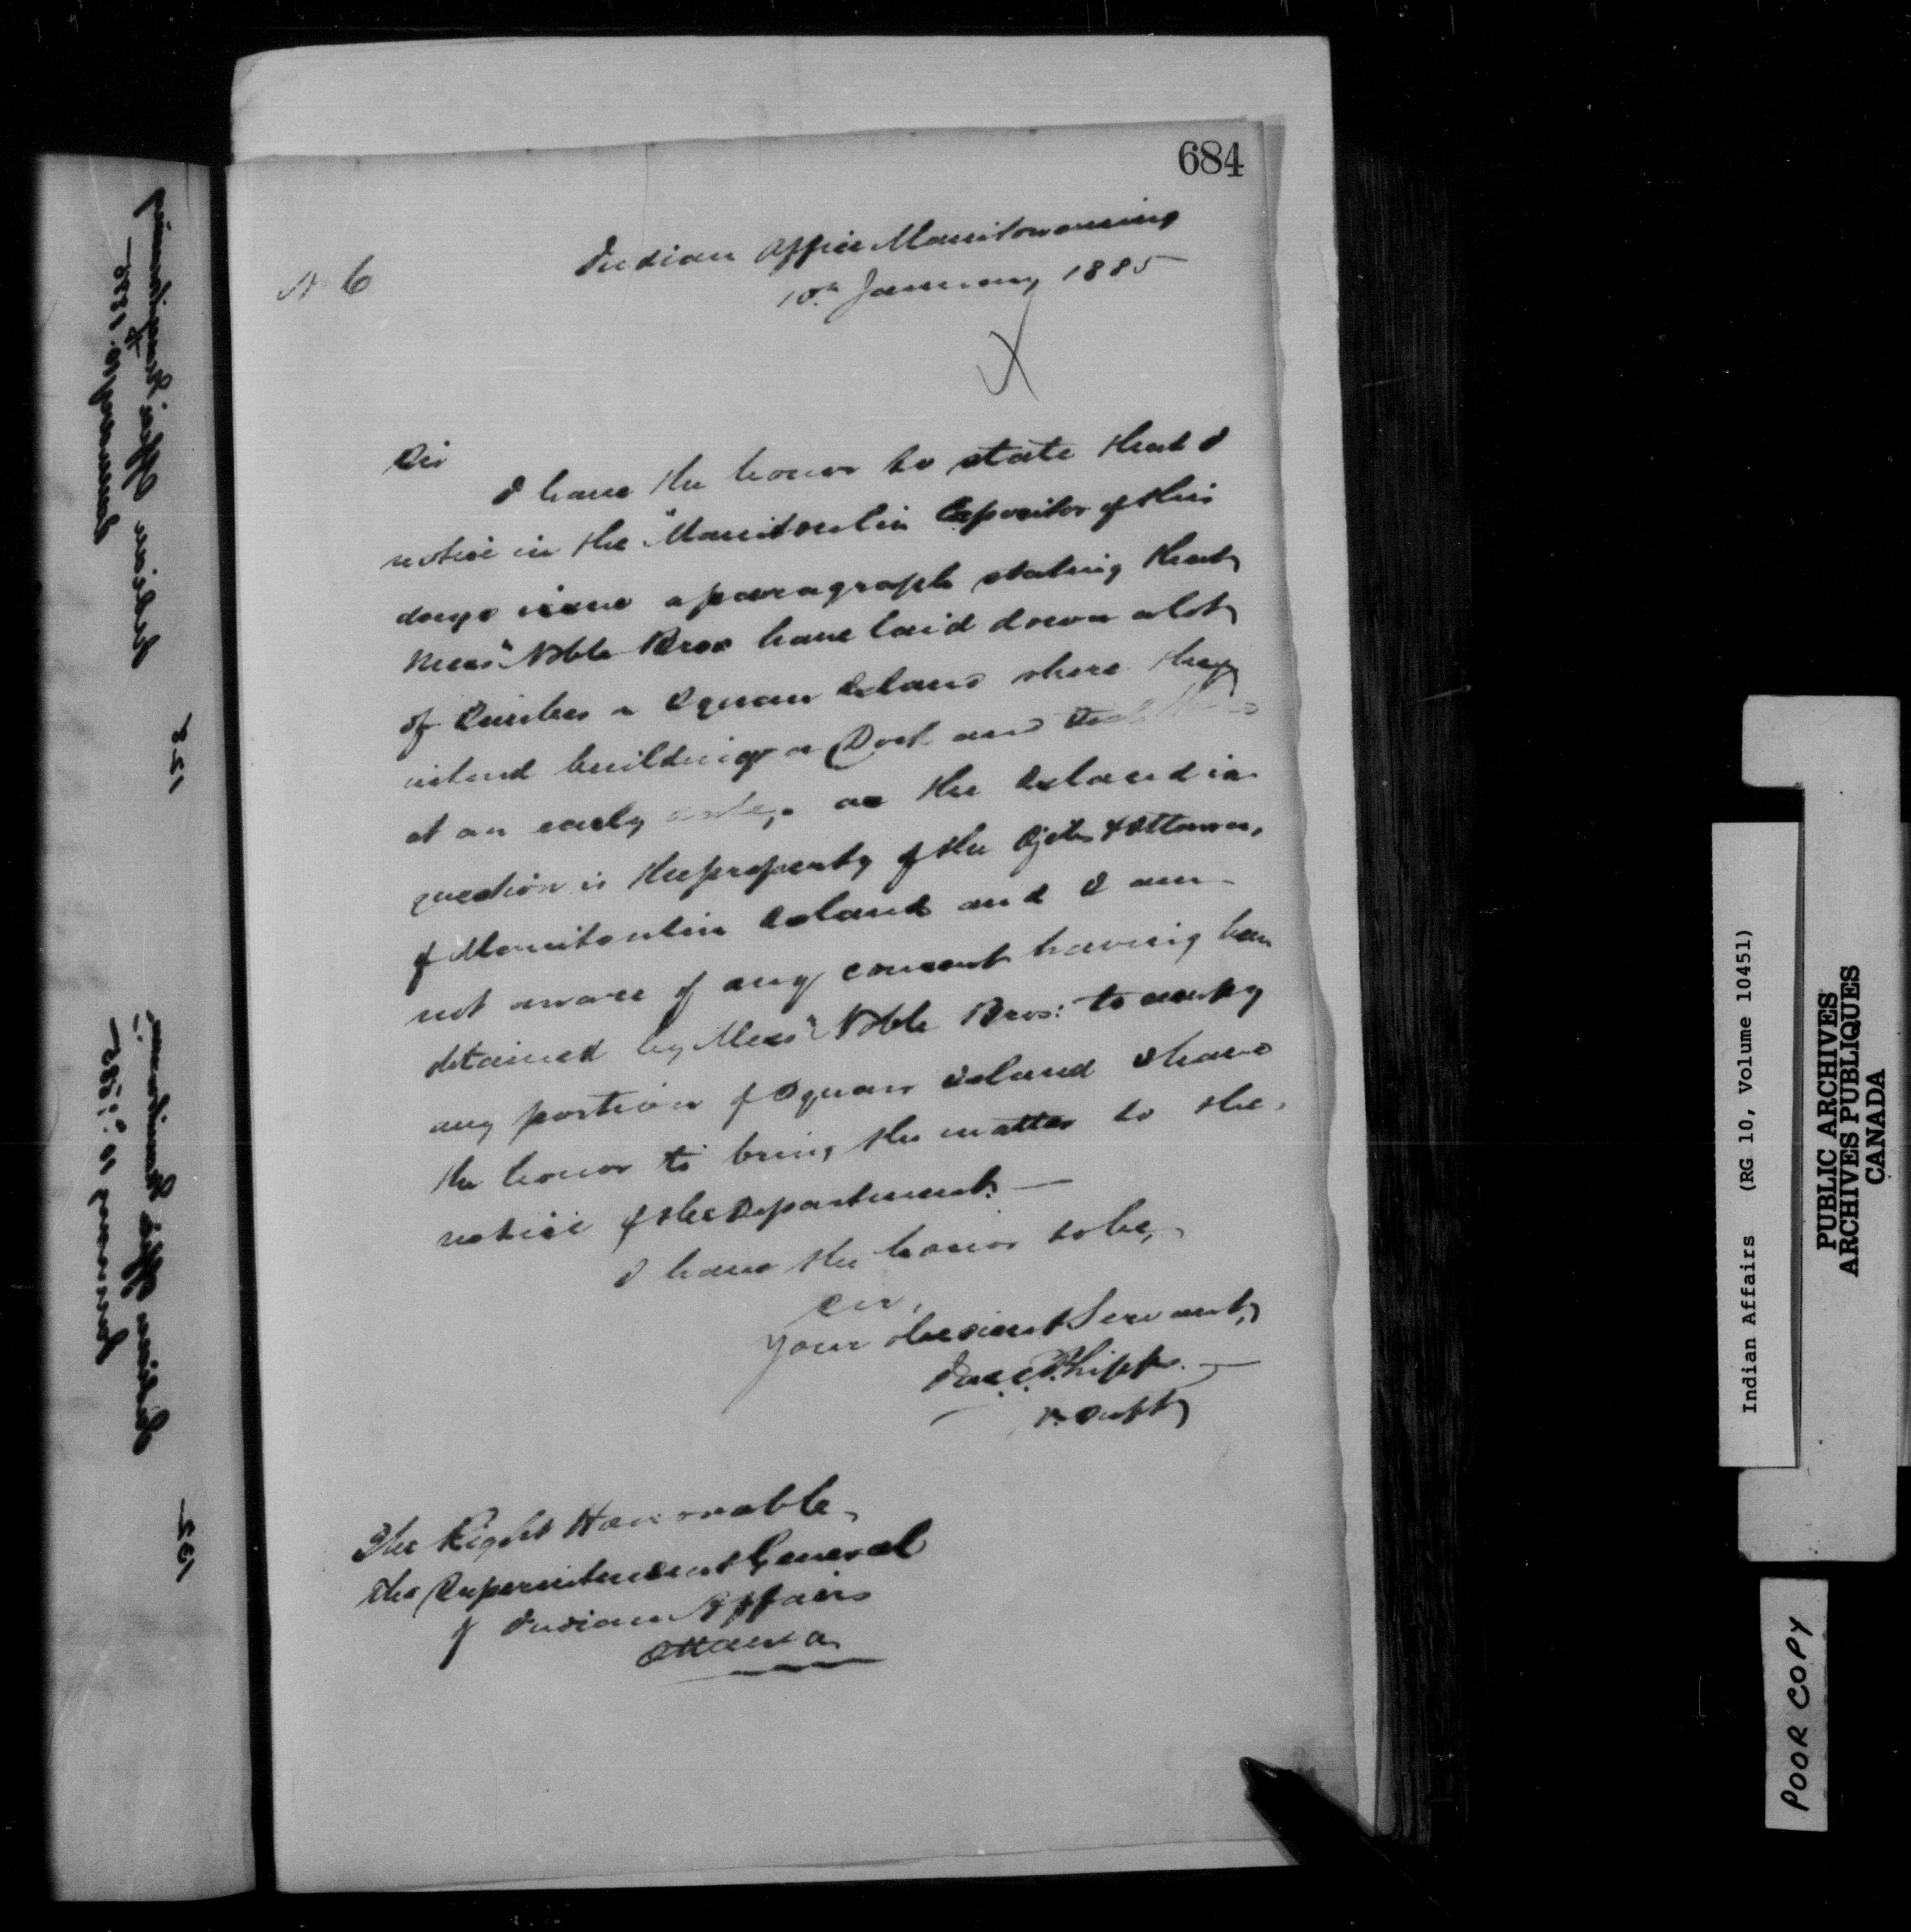 684
No 6
Indian Office Manitowaning
10th January 1885
Sir
I have the honor to state that I
notice in the "Manitoulin Expositor of this
days issue a paragraph stating that
Messrs Noble Bros have laid down a lot
of timber on Squaw Island where they
intend building a Dock and
at an early date, as the Island in
question is the property of the Ojibs & Ottawas,
of Manitoulin Island and I am
not aware of any consent having been
obtained by Messrs Noble Bros: to occupy
any portion of Squaw Island I have
the honor to bring the matter to the,
notice of the Department. —
I have the honor to be,
Sir,
Your obedient Servant,
Jas. C. Phipps.
V. Supt
The Right Honorable
The Superintendent General
of Indian Affairs
Ottawa
Indian Affairs (RG 10, Volume 10451)
PUBLIC ARCHIVES
ARCHIVES PUBLIQUES
CANADA
POOR COPY